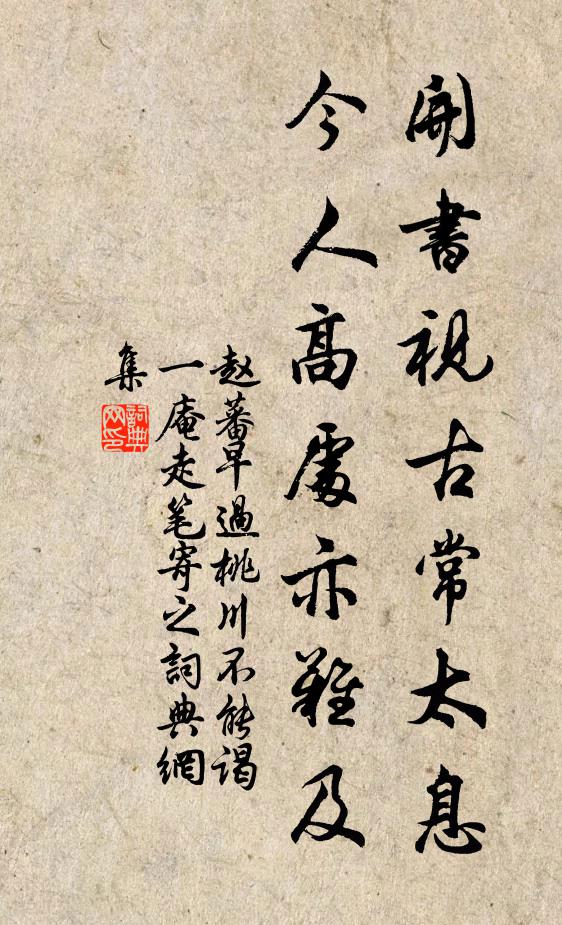 開書視古常太息
今人高處亦難及
赵蕃早過桃川不能謁
一庵走笔寄之詞典網
集
詞典网印